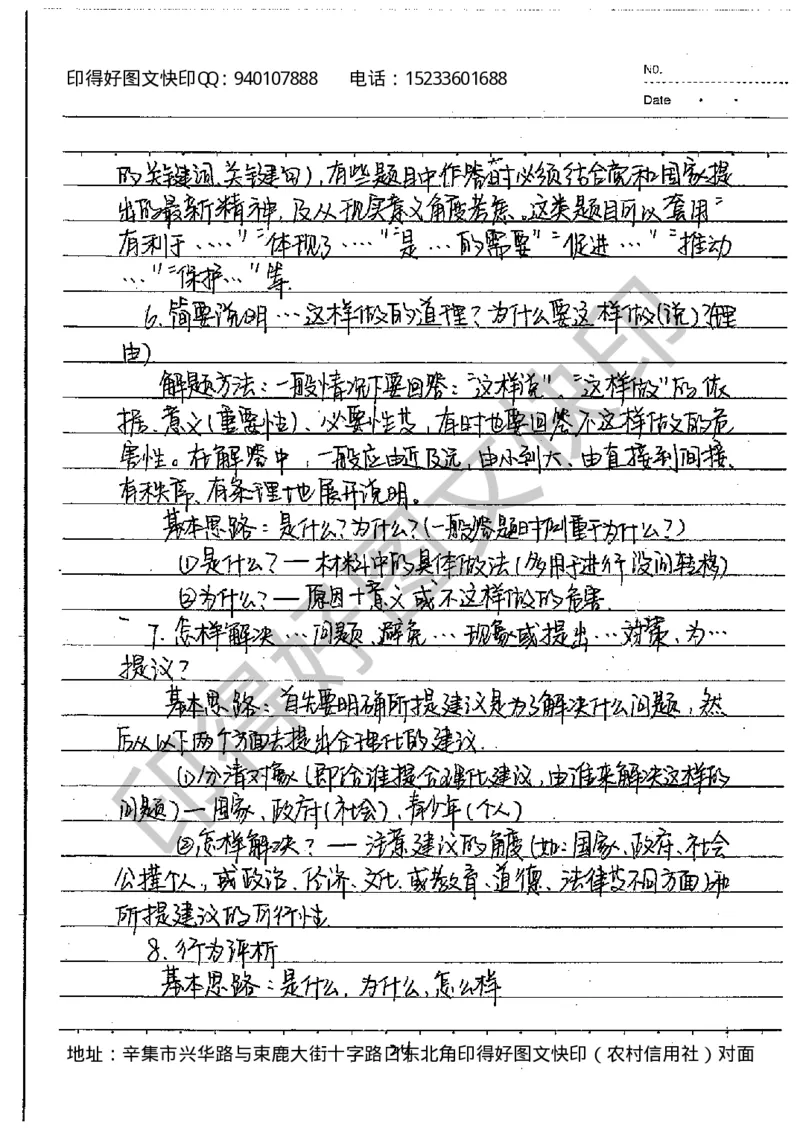 印得好图文快印QQ：940107888 电话：15233601688
No.
Date
的关键词、关键句），有些题目中作答时必须结合党和国家提
出的最新精神，及从现实意义角度考虑。这类题目可以套用“
有利于……”“体现了……”“是…的需要”“促进…”“推动
…”“保护…”等.
6、简要说明…这样做的道理？为什么要这样做(说)？(理
由)
解题方法：一般情况下要回答：“这样说”“这样做”的依
据、意义(重要性)、必要性等，有时也要回答不这样做的危
害性。在解答中，一般应由近及远，由小到大、由直接到间接、
有秩序、有条理地展开说明。
基本思路：是什么？为什么？(一般答题时侧重于为什么？)
①是什么？—材料中的具体做法(多用于进行设问转移)
②为什么？—原因＋意义或不这样做的危害.
7.怎样解决…问题、避免…现象或提出…对策、为…
提议？
基本思路：首先要明确所提建议是为了解决什么问题，然
后从以下两个方面去提出合理化的建议.
①分清对象(即给谁提合理化建议，由谁来解决这样的
问题)—国家、政府(社会)、青少年(个人)
②怎样解决？—注意建议的角度(如：国家、政府、社会
公揉个人，或政治、经济、文化、或教育、道德、法律等不同方面)和
所提建议的可行性.
8.行为评析
基本思路：是什么，为什么，怎么样
地址：辛集市兴华路与束鹿大街十字路口东北角印得好图文快印（农村信用社）对面
24
印得好图文快印